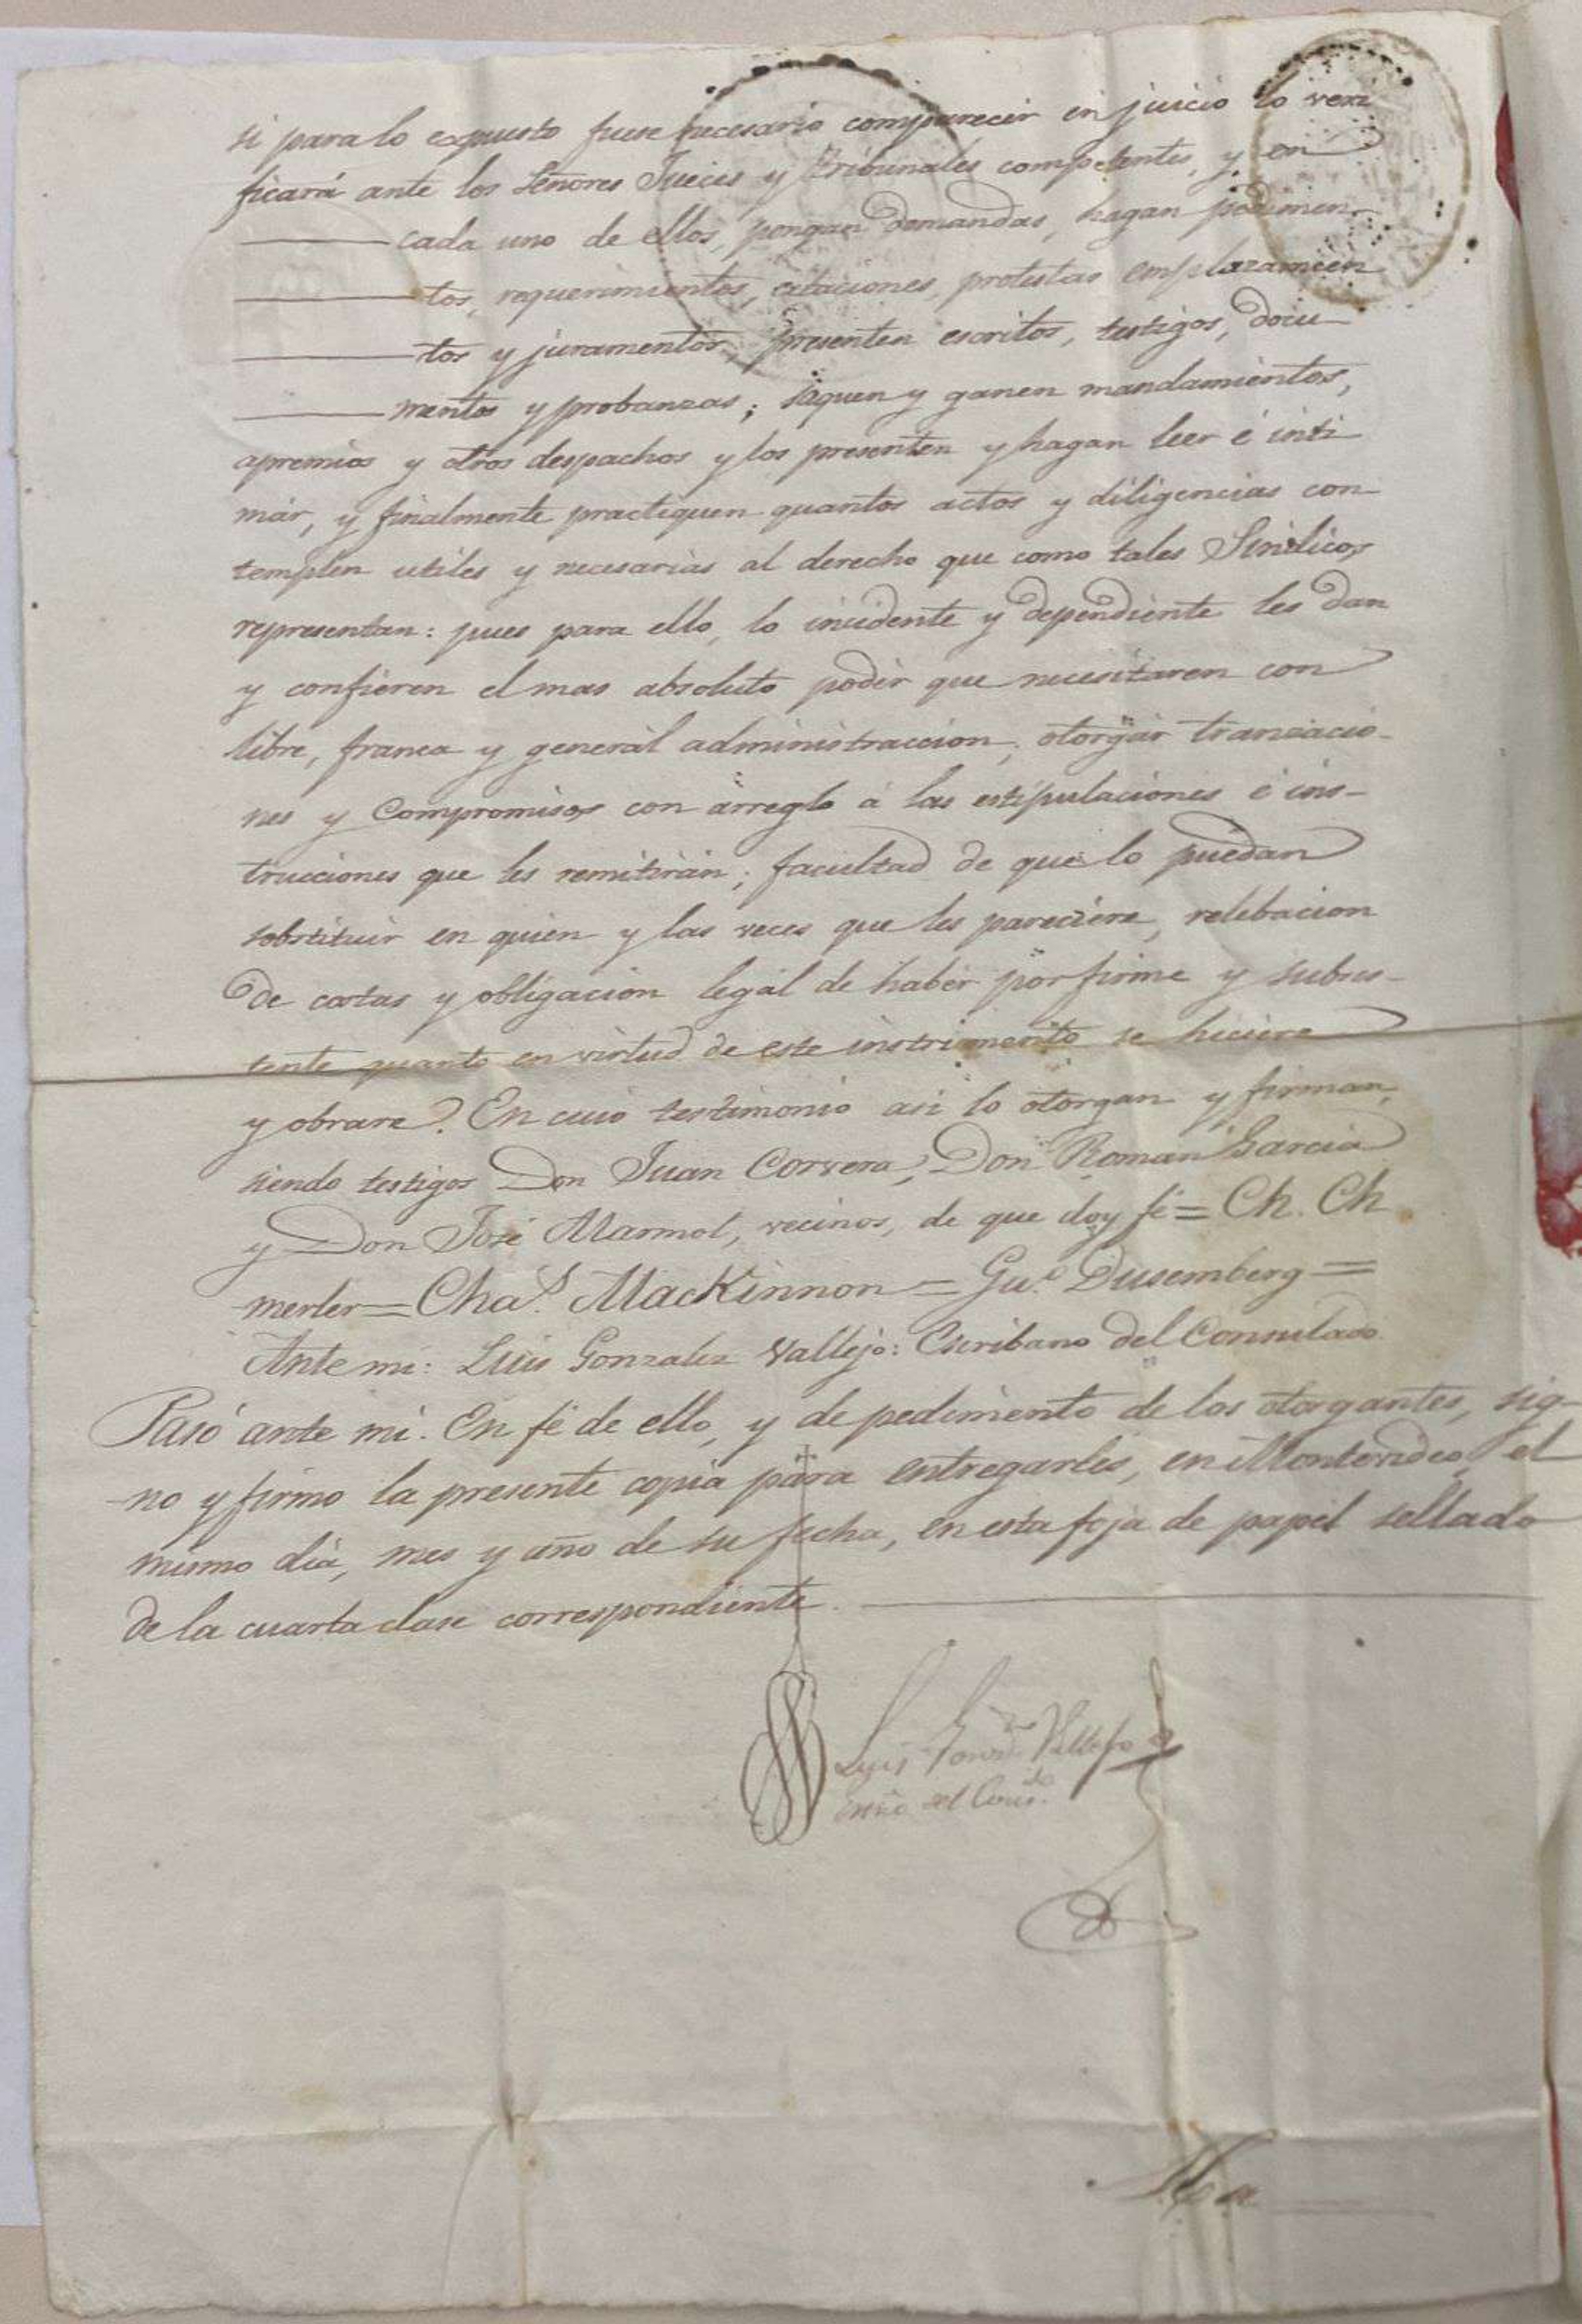 si para lo expuesto fuese necesario comparecer en juicio lo veri
ficará ante los Señores Jueces y tribunales competentes, y en
cada uno de ellos, pongan demandas, hagan pedimen-
tos, requerimientos, citaciones, protestas emplazamien
tos y juramentos, presenten escritos, testigos, docu-
mentos y probanzas; saquen y ganen mandamientos,
apremios y otros despachos y los presenten y hagan leer é inti
mar, y finalmente practiquen quantos actos y diligencias con-
templen utiles y necesarias al derecho que como tales Sindicos
representan: pues para ello, lo incidente y dependiente les dan
y confieren el mas absoluto poder que necesitaren con
libre, franca y general administraccion, otorgar tranzacio-
nes y Compromisos con arreglo á las estipulaciones é ins-
trucciones que les remitirán; facultad de que lo puedan
sobstituir en quien y las veces que les pareciere, relebacion
de costas y obligacion legal de haber por firme y subsis-
tente quanto en virtud de este instrumento se hiciere
y obrare. En cuio testimonio asi lo otorgan y firman,
siendo testigos Don Juan Corvera, Don Roman Garcia
y Don José Marmol, vecinos, de que doy fé = Ch. Ch
merler = Cha.s MacKinnon = Gu.e Dusemberg =
Ante mi: Luis Gonzalez Vallejo: Escribano del Consulado
Pasó ante mi. En fé de ello, y de pedimento de los otorgantes, sig-
no y firmo la presente copia para entregarles, en Montevideo, el
mismo dia, mes y año de su fecha, en esta foja de papel sellado
de la cuarta clase correspondiente.
Luis Gonz.z Vallejo
Essno del Cons.do